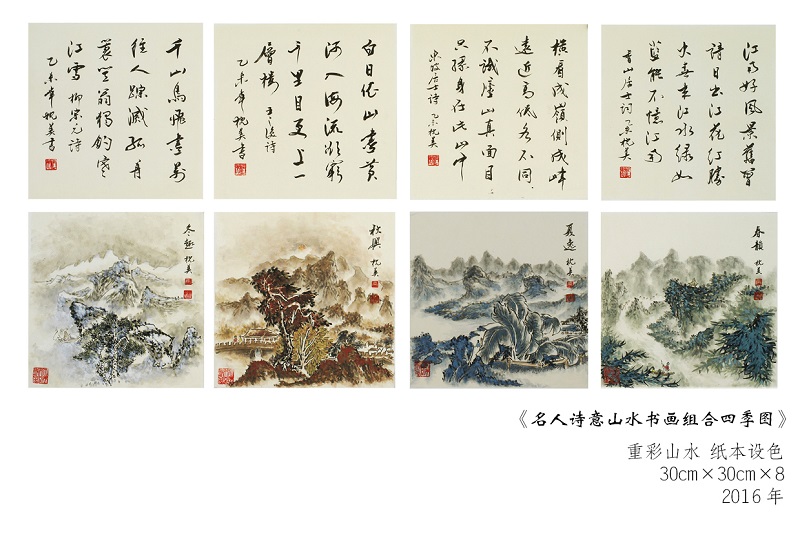 江南好風景舊曾
諳日出江花红勝
火春来江水绿如
蓝能不憶江南
香山居士词 乙未枕美
横看成嶺側成峰
遠近高低各不同
不識廬山真面目
只緣身在此山中
東坡居士诗 乙未枕美
白日依山盡黄
河入海流欲窮
千里目更上一
層樓 王之渙诗
乙未年枕美書
千山鳥飛絶萬
徑人踪滅孤舟
蓑笠翁獨釣寒
江雪 柳宗元诗
乙未年枕美書
春韻 枕美
夏逸 枕美
秋興 枕美
冬趣 枕美
《名人诗意山水书画组合四季图》
重彩山水 纸本设色
30cm×30cm×8
2016 年